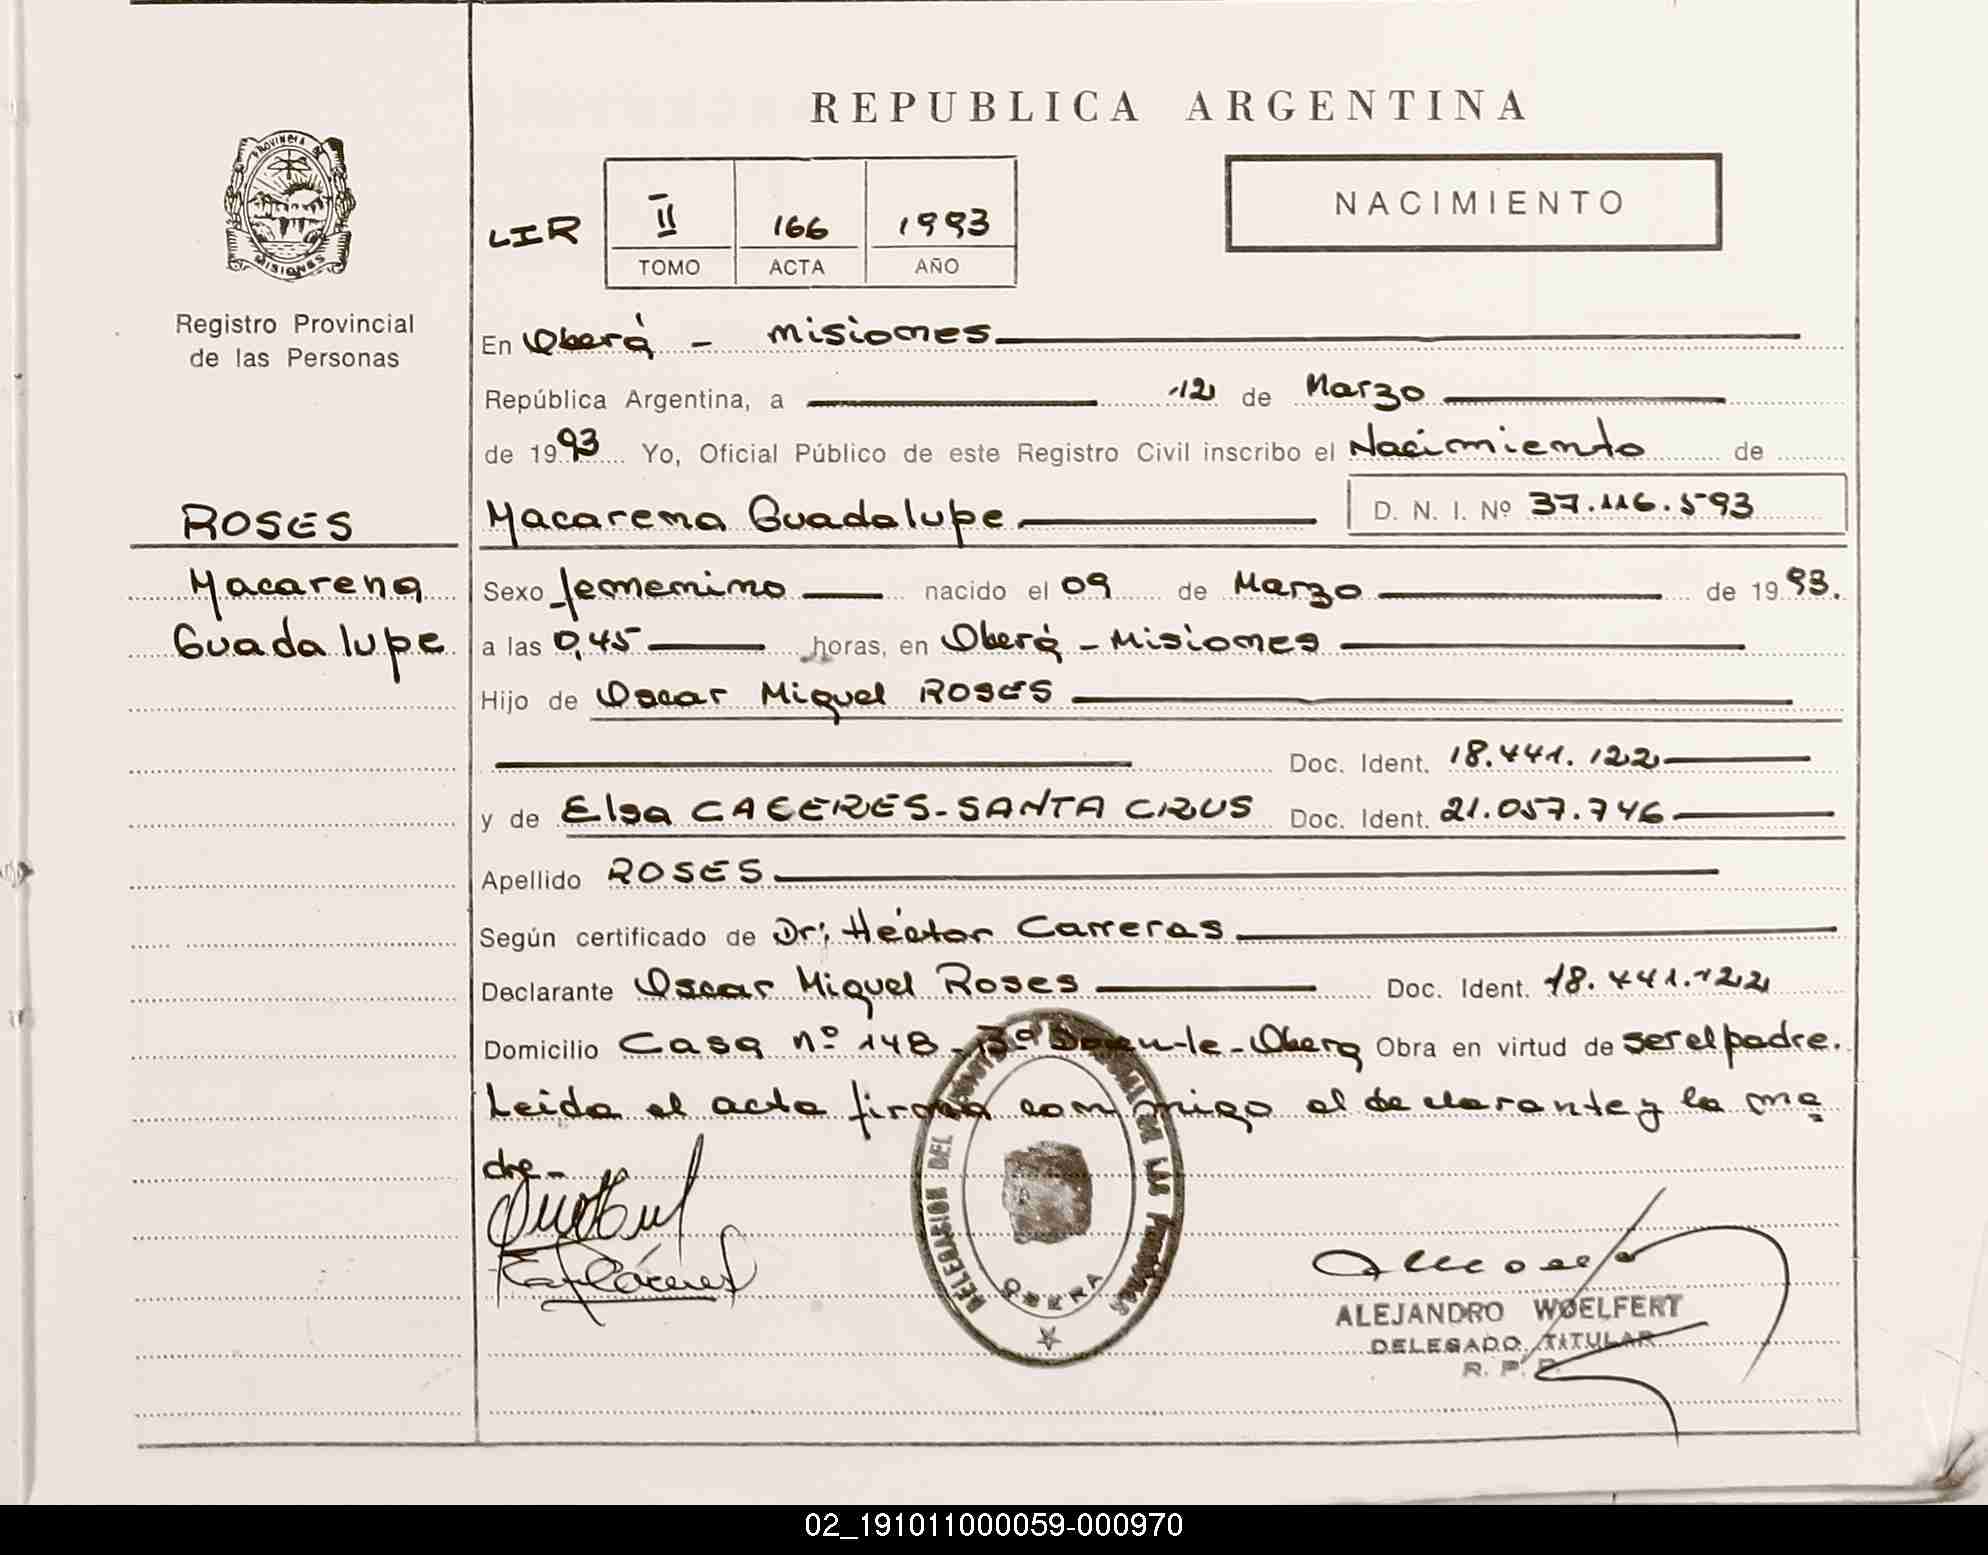 REPUBLICA ARGENTINA
PROVINCIA DE
MISIONES
Registro Provincial
de las Personas
LIR
II 166 1993
TOMO ACTA AÑO
NACIMIENTO
En Oberá - Misiones
República Argentina, a 12 de Marzo
de 1993 Yo, Oficial Público de este Registro Civil inscribo el Nacimiento de
ROSES
Macarena Guadalupe D. N. I. Nº 37.116.593
Macarena
Guadalupe
Sexo femenino nacido el 09 de Marzo de 1993.
a las 0,45 horas, en Oberá - Misiones
Hijo de Oscar Miguel ROSES
Doc. Ident. 18.441.122
y de Elsa CACERES-SANTA CRUS Doc. Ident. 21.057.746
Apellido ROSES
Según certificado de Dr; Héctor Carreras
Declarante Oscar Miguel Roses Doc. Ident. 18.441.122
Domicilio Casa nº 148 - 3ª - Obera Obra en virtud de ser el padre.
Leida el acta firma conmigo el declarante y la ma
dre-
DELEGACION DEL REGISTRO PROVINCIAL DE LAS PERSONAS
OBERA
ALEJANDRO WOELFERT
DELEGADO TITULAR
R. P. P.
02_191011000059-000970